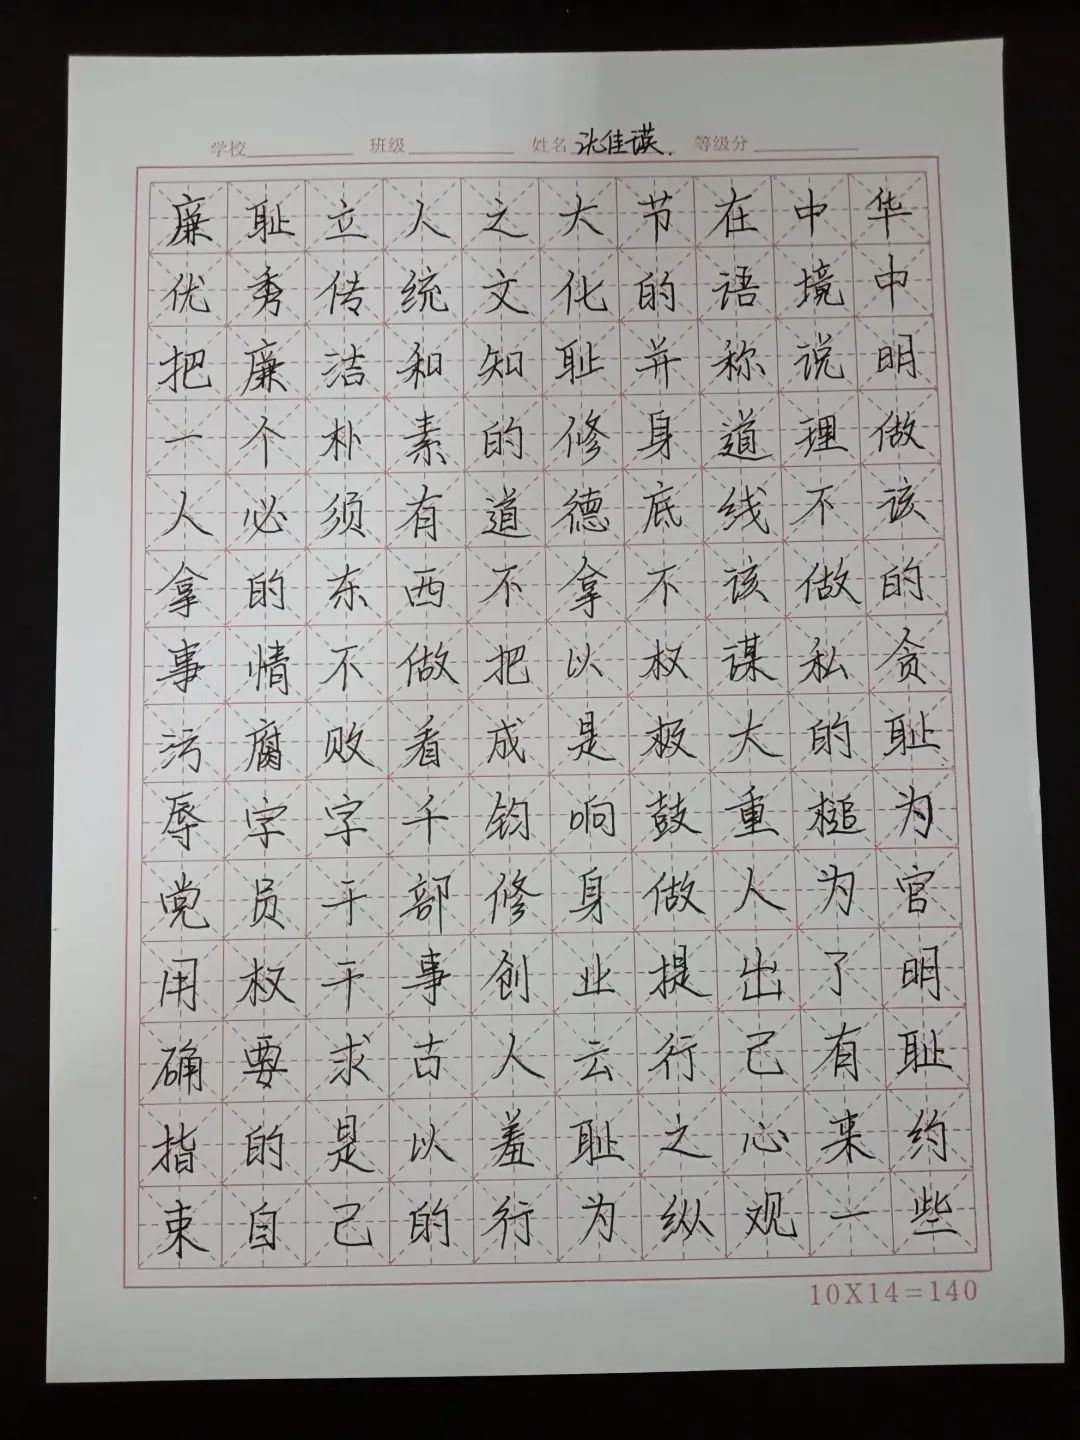 学校 班级 姓名 张佳瑛 等级分
廉耻立人之大节在中华
优秀传统文化的语境中
把廉洁和知耻并称说明
一个朴素的修身道理做
人必须有道德底线不该
拿的东西不拿不该做的
事情不做把以权谋私贪
污腐败看成是极大的耻
辱字字千钧响鼓重槌为
党员干部修身做人为官
用权干事创业提出了明
确要求古人云行己有耻
指的是以羞耻之心来约
束自己的行为纵观一些
10X14=140